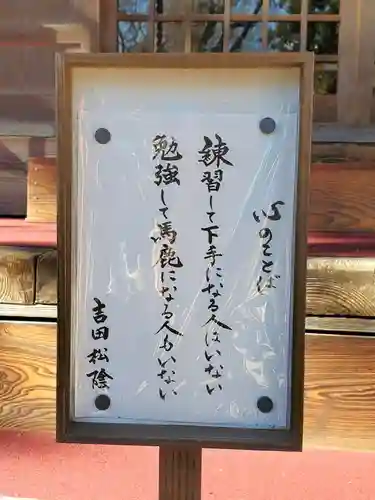 心のことば
錬習して下手になる人はいない
勉強して馬鹿になる人もいない
吉田松陰